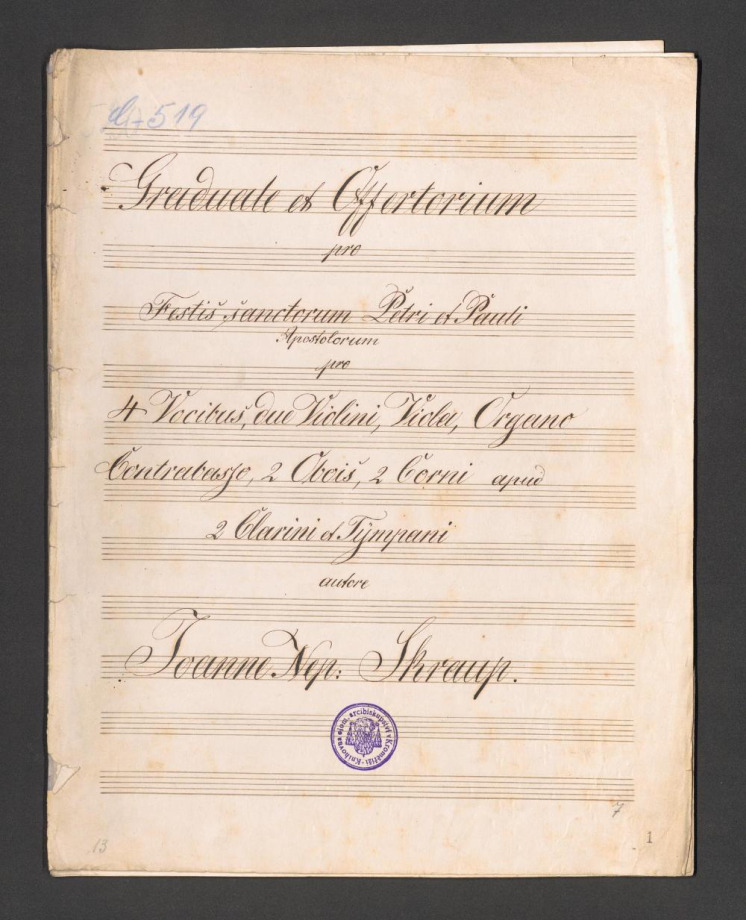 519
Graduale et Offertorium
pro
Festis sanctorum Petri et Pauli
Apostolorum
pro
4 Vocibus, due Violini, Viola, Organo
Contrabasso, 2 Obois, 2 Corni apud
2 Clarini et Tÿmpani
autore
Joanne Nep: Skraup.
Knihovna olom. arcibiskupství v Kroměříži
7
13
1